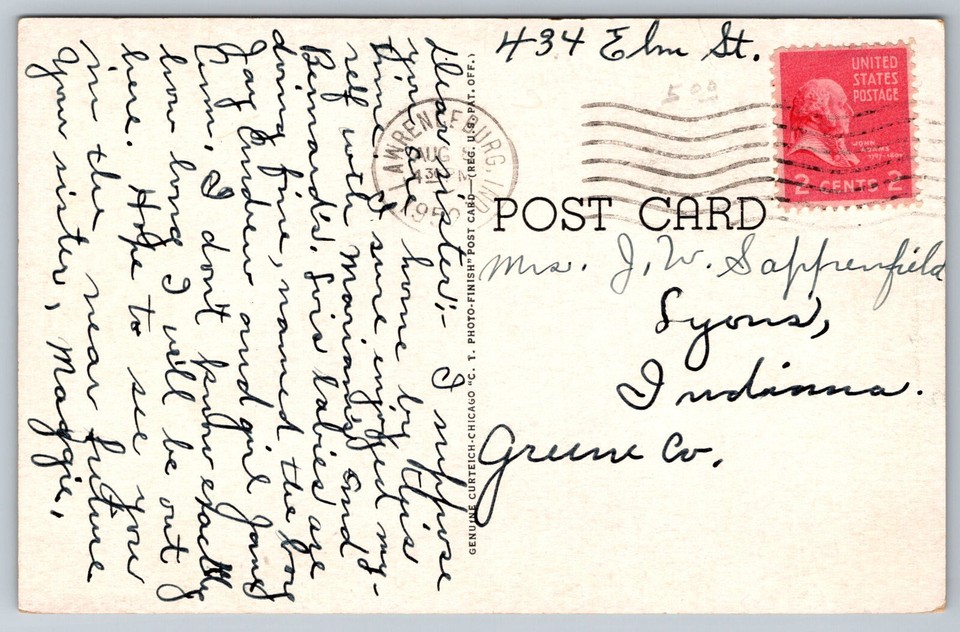 434 Elm St.
5 00
UNITED
STATES
POSTAGE
JOHN
ADAMS
1797-1801
2 CENTS 2
LAWRENCEBURG, IND.
AUG
4 30 PM
195
POST CARD
Mrs. J. W. Sappenfield
Lyons,
Indiana.
Greene Co.
GENUINE CURTEICH-CHICAGO "C. T. PHOTO-FINISH" POST CARD—(REG. U.S. PAT. OFF.)
Dear sister;- I suppose
you are home by this
time. I sure enjoyed my-
self with Marian's and
Bernard's. Lois babies are
doing fine, named the boy
Jay Andrew and girl Janey
Ann. I don't know exactly
how long I will be out
here. Hope to see you
in the near future.
Your sister, Maggie.